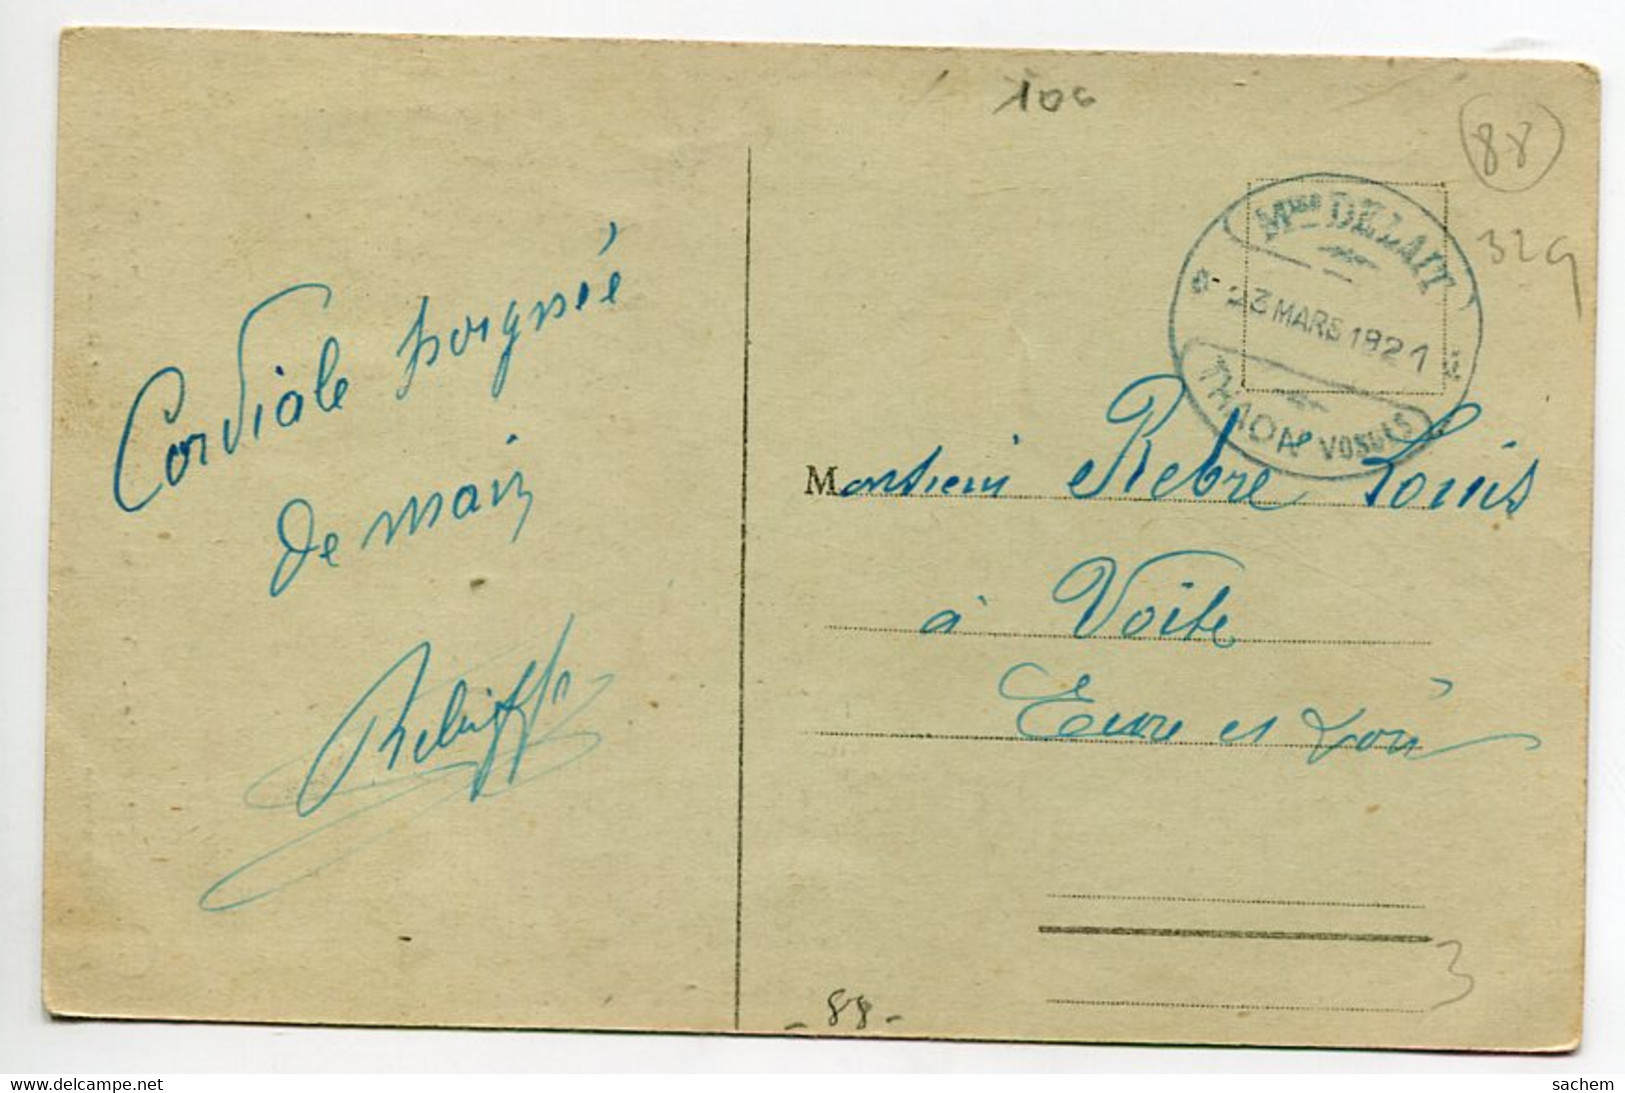 106
88
329
Mme DELAIT
23 MARS 1921
THAON VOSGES
Cordiale poignée
de main
Rebiffé
Monsieur Rebre Louis
à Voise
Eure et Loir
3
- 88 -
delcampe.net
sachem